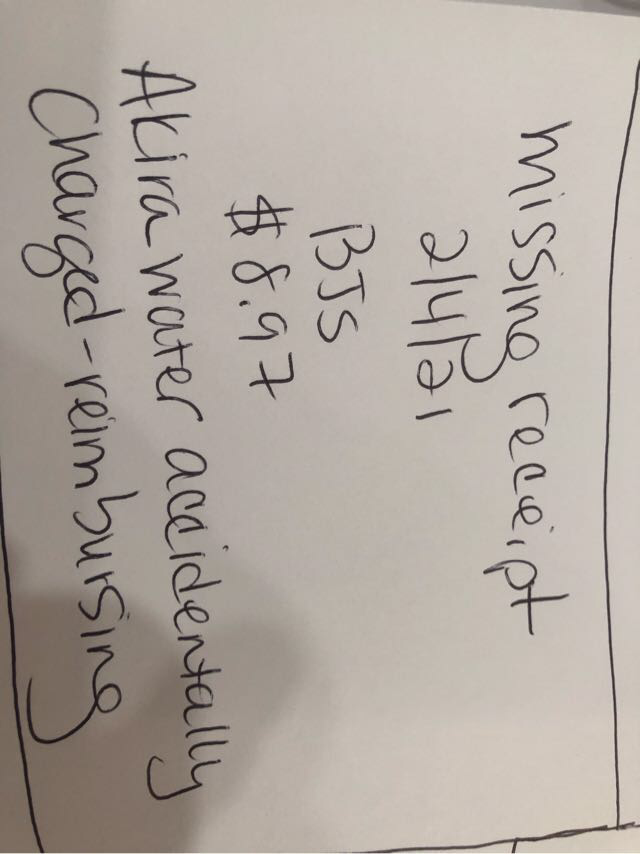 missing receipt
2/4/21
BJs
$8.97
Akira water accidentally
Charged-reimbursing